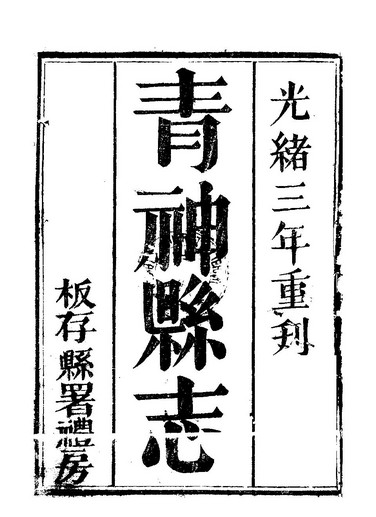 光緒三年重刋
青神縣志
板存縣署禮房